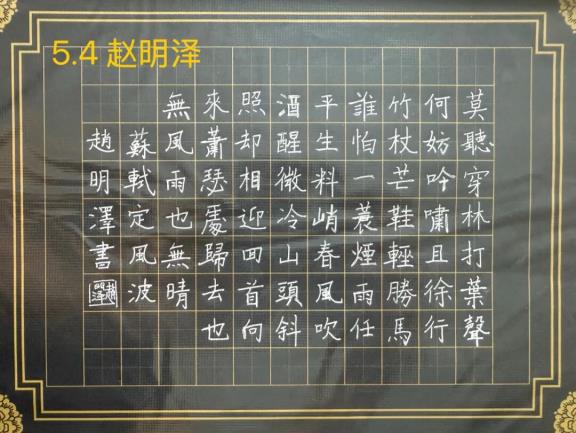 5.4 赵明泽
莫聽穿林打葉聲
何妨吟嘯且徐行
竹杖芒鞋輕勝馬
誰怕一蓑煙雨任
平生料峭春風吹
酒醒微冷山頭斜
照却相迎回首向
來蕭瑟處歸去也
無風雨也無晴
蘇軾定風波
趙明澤書
趙明澤